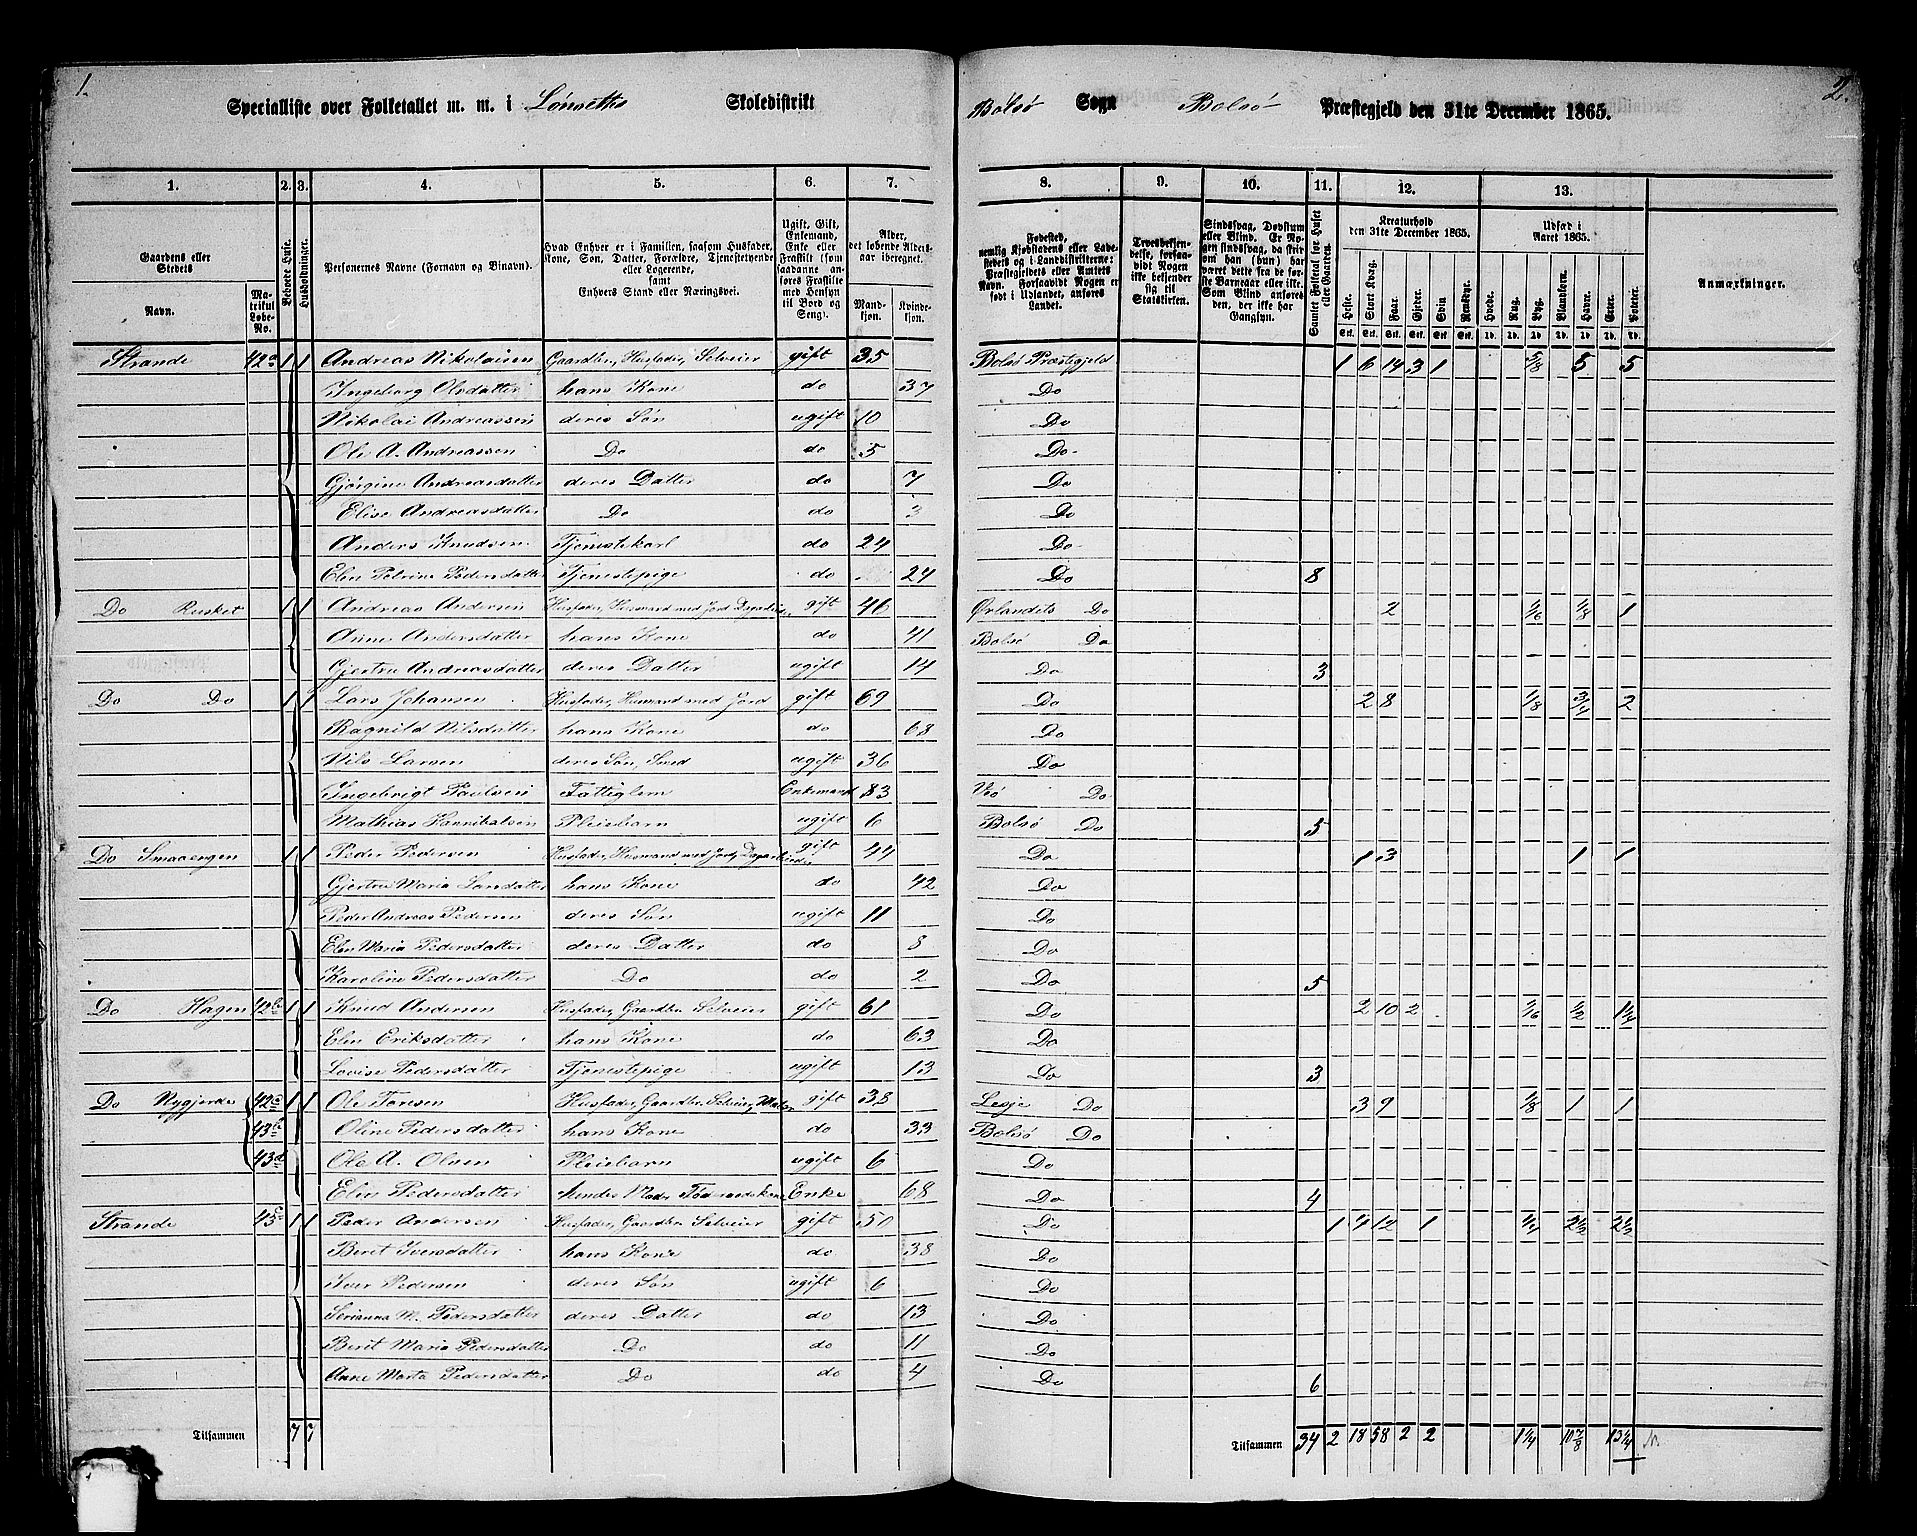 1.
2.
Specialliste over Folketallet m. m. i Lønseths Skoledistrikt Bolsø Sogn Bolsø Præstegjeld den 31te December 1865.
1. 2. 3. 4. 5. 6. 7. 8. 9. 10. 11. 12. 13.
Gaardens eller Stedets
Navn.
Matrikul Løbe-No.
Beboede Huse.
Husholdninger.
Personernes Navne (Fornavn og Binavn).
Hvad Enhver er i Familien, saasom Husfader, Kone, Søn, Datter, Forældre, Tjenestetyende eller Logerende, samt Enhvers Stand eller Næringsvei.
Ugift, Gift, Enkemand, Enke eller Fraskilt (som saadanne ansøres Fraskilte med Hensyn til Bord og Seng).
Alder, det løbende Aldersaar iberegnet.
Mandkjøn. Kvindekjøn.
Fødested, nemlig Kjøbstadens eller Ladestedets og i Landdistrikterne: Præstegjeldets eller Amtets Navn. Forsaavidt Nogen er født i Udlandet, anføres Landet.
Troesbekjendelse, forsaavidt Nogen ikke bekjender sig til Statskirken.
Sindssvag, Døvstum eller Blind. Er Nogen sindssvag, da skrives om han (hun) har været dette fra de første Barneaar eller ikke. Som Blind anføres den, der ikke har Gangsyn.
Samlet Folketal for Huset eller Gaarden.
Kreaturhold den 31te December 1865.
Heste. Stort Kvæg. Faar. Gjeder. Svin Rensdyr.
Udsæd i Aaret 1865.
Hvede. Rug. Byg. Blandkorn. Havre. Erter. Poteter.
Anmærkninger.
Strande 42a 1 1 Andreas Nikolaisen Gaardbr, Husfader, Selveier gift 35 Bolsø Præstegjeld 1 6 14 3 1 5/8 5 5
Ingeborg Olsdatter hans Kone do 37 Do
Nikolai Andreassen deres Søn ugift 10 Do
Ole A. Andreassen Do do 5 Do
Gjørgine Andreasdatter deres Datter do 7 Do
Elise Andreasdatter Do do 3 Do
Anders Knudsen Tjenestekarl do 24 Do
Elen Petrine Pedersdatter Tjenestepige do 24 Do 8
Do Rusket 1 1 Andreas Andersen Husfader, Husmand med Jord, Dagarbeider gift 46 Ørlandets Do 2 1/16 1/8 1
Anne Andersdatter hans Kone do 41 Bolsø Do
Gjertru Andreasdatter deres Datter ugift 14 Do 3
Do Do 1 1 Lars Johansen Husfader, Husmand med Jord gift 69 Do 2 8 1/8 3/4 2
Ragnild Nilsdatter hans Kone do 68 Do
Nils Larsen deres Søn, Smed ugift 36 Do
Ingebrigt Paulsen Fattiglem Enkemand 83 Veø Do
Mathias Hannibalsen Pleiebarn ugift 6 Bolsø Do 5
Do Smaaengen 1 1 Peder Pedersen Husfader, Husmand med Jord, Dagarbeider gift 44 Do 1 3 1 1
Gjertru Maria Larsdatter hans Kone do 42 Do
Peder Andreas Pedersen deres Søn ugift 11 Do
Elen Maria Pedersdatter deres Datter do 8 Do
Karoline Pedersdatter Do do 2 Do 5
Do Hagen 42b 1 1 Knud Andersen Husfader, Gaardbr. Selveier gift 61 Do 2 10 2 1/16 1/2 1 1/4
Elen Eriksdatter hans Kone do 63 Do
Lovise Pedersdatter Tjenestepige ugift 13 Do 3
Do Nygjerde 42c 1 1 Ole Toresen Husfader, Gaardbr. Selveier, Maler gift 38 Lesje Do 3 9 1/8 1 1
43b Oline Pedersdatter hans Kone do 33 Bolsø Do
43d Ole A. Olsen Pleiebarn ugift 6 Do
Elen Pedersdatter hendes Moder Føderaadskone Enke 68 Do 4
Strande 43c 1 1 Peder Andersen Husfader, Gaardbr. Selveier gift 50 Do 1 4 12 1 1/4 2 1/2 2 1/2
Berit Iversdatter hans Kone do 38 Do
Iver Pedersen deres Søn ugift 6 Do
Serianna M. Pedersdatter deres Datter do 13 Do
Berit Maria Pedersdatter Do do 11 Do
Anne Marta Pedersdatter Do do 4 Do 6
Tilsammen 7 7 Tilsammen 34 2 18 58 2 2 1 1/4 10 7/8 13 1/4